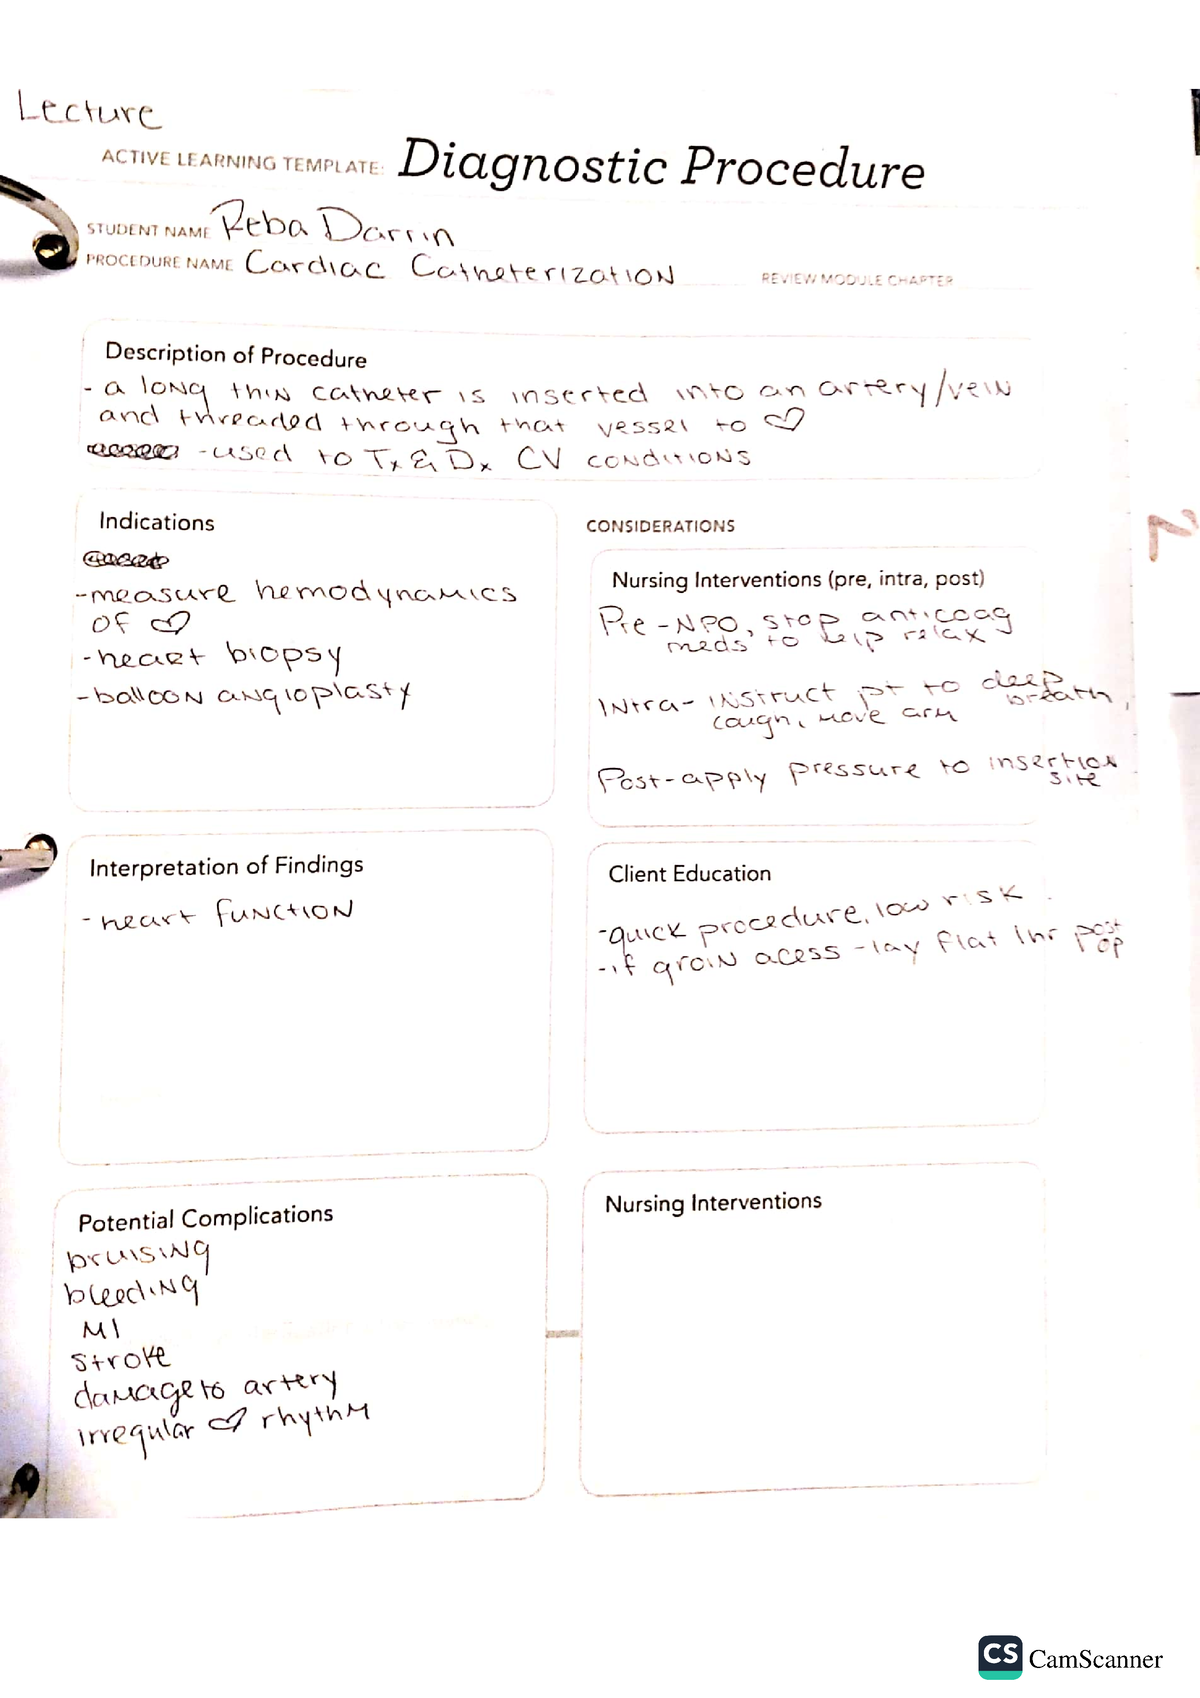 Lecture
ACTIVE LEARNING TEMPLATE: Diagnostic Procedure
STUDENT NAME Reba Darrin
PROCEDURE NAME Cardiac Catheterization
REVIEW MODULE CHAPTER
Description of Procedure
- a long thin catheter is inserted into an artery/vein
and threaded through that vessel to ♡
-used to Tx & Dx CV conditions
Indications
-measure hemodynamics
of ♡
-heart biopsy
-balloon angioplasty
CONSIDERATIONS
Nursing Interventions (pre, intra, post)
Pre -NPO, stop anticoag
meds to help relax
Intra- instruct pt to deep
breath,
cough, move arm
Post-apply pressure to insertion
site
2
Interpretation of Findings
-heart function
Client Education
-quick procedure, low risk
-if groin acess -lay flat 1hr post
op
Potential Complications
bruising
bleeding
MI
stroke
damage to artery
irregular ♡ rhythm
Nursing Interventions
CS CamScanner